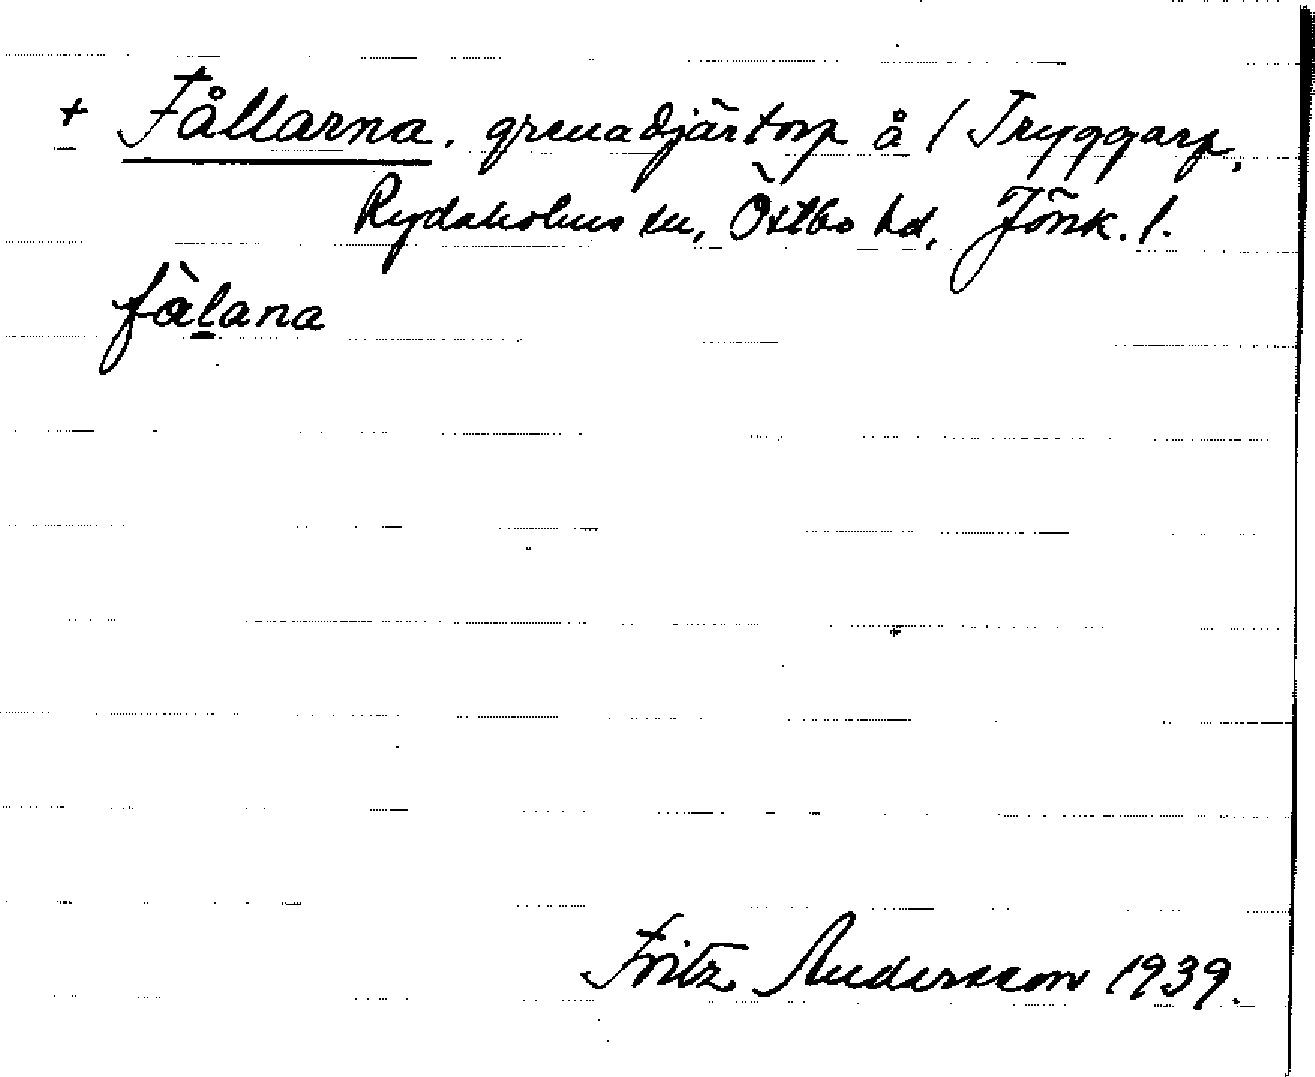 + Fållarna, grenadjärtorp å / Tryggarp,
Rydaholms sn, Östbo hd, Jönk. l.
fàlana
Fritz Andersson 1939.